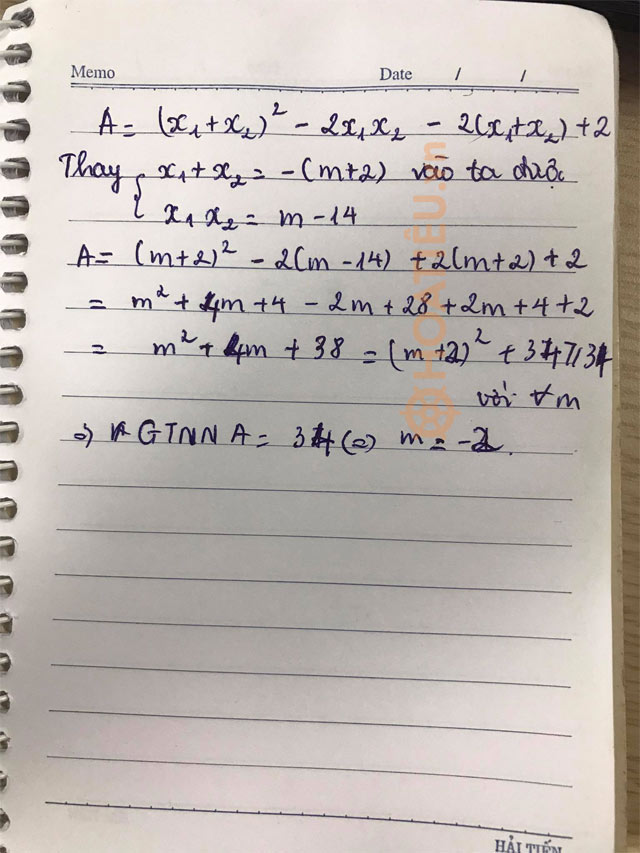 Memo Date / /
A = (x₁+x₂)² - 2x₁x₂ - 2(x₁+x₂) + 2
Thay { x₁ + x₂ = -(m+2) vào ta được
x₁ x₂ = m - 14
A = (m+2)² - 2(m - 14) + 2(m+2) + 2
= m² + 4m + 4 - 2m + 28 + 2m + 4 + 2
= m² + 4m + 38 = (m+2)² + 34 ≥ 34
với ∀m
=> GTNN A = 34 (=) m = -2.
HOATIEU.vn
HẢI TIẾN